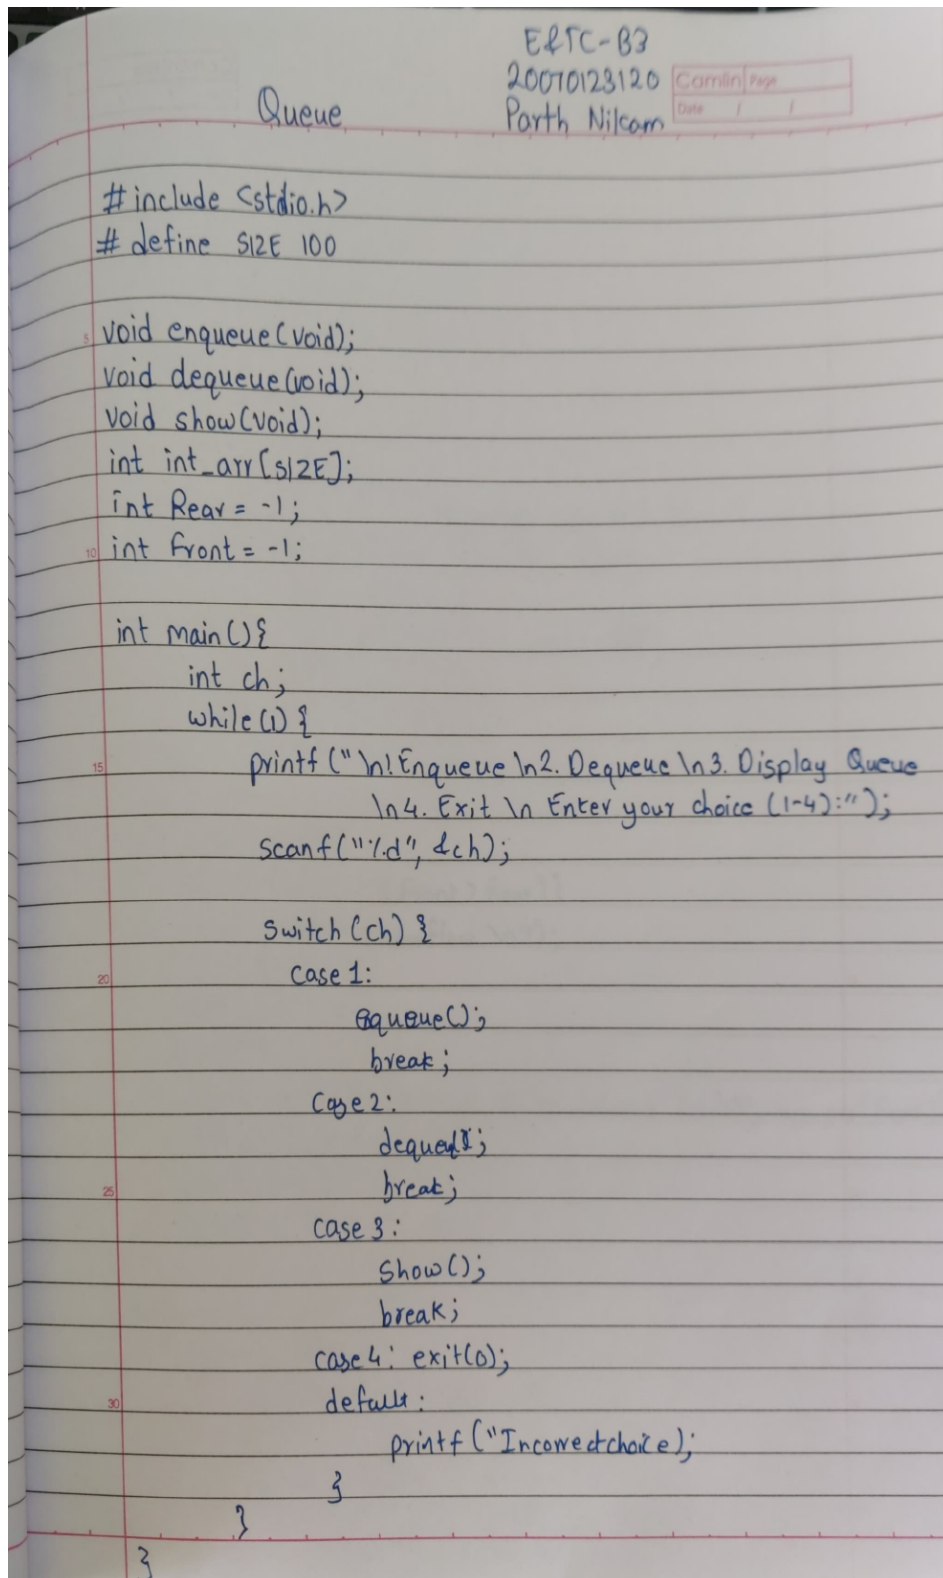 E&TC-B3
20070123120
Camlin Page
Date / /
Queue
Parth Nilcam
#include <stdio.h>
# define SIZE 100
5
void enqueue(void);
void dequeue(void);
void show(void);
int int_arr[SIZE];
int Rear = -1;
10
int Front = -1;
int main(){
int ch;
while(1){
15
printf("\n! Enqueue \n2. Dequeue \n3. Display Queue
\n4. Exit \n Enter your choice (1-4):");
scanf("%d", &ch);
switch (ch) {
20
case 1:
break;
case 2:
25
break;
case 3:
show();
break;
case 4: exit(0);
30
default:
printf("Incorrect choice);
}
}
}